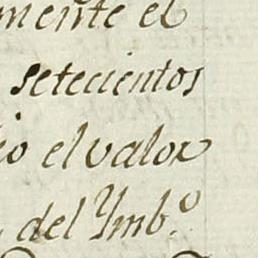 mente el
setecientos
io el valor
del Ymb.º